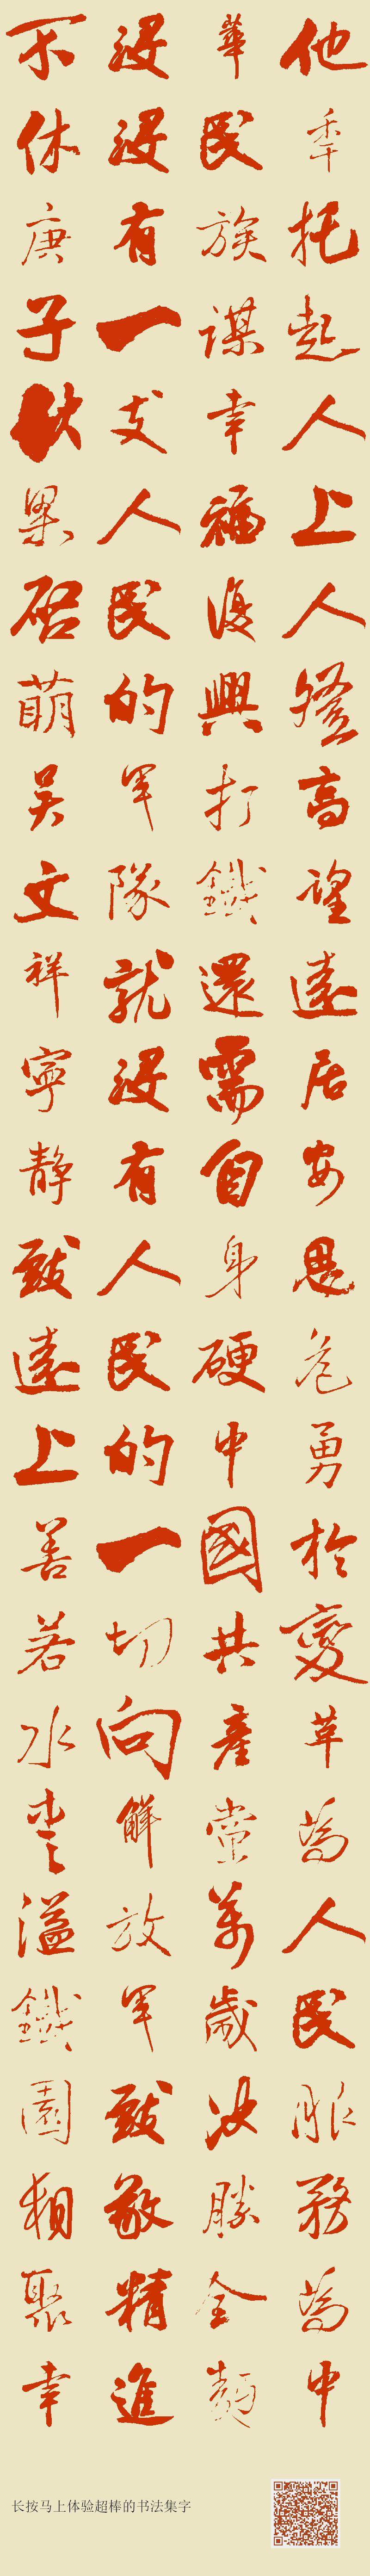 他年托起人上人登高望遠居安思危勇於變革為人民服務為中
華民族謀幸福復興打鐵還需自身硬中國共產黨萬歲決勝全麵
沒沒有一支人民的軍隊就沒有人民的一切向解放軍致敬精進
不休庚子秋果啓萌吴文祥寧静致遠上善若水愛溢鐵園相聚幸
长按马上体验超棒的书法集字